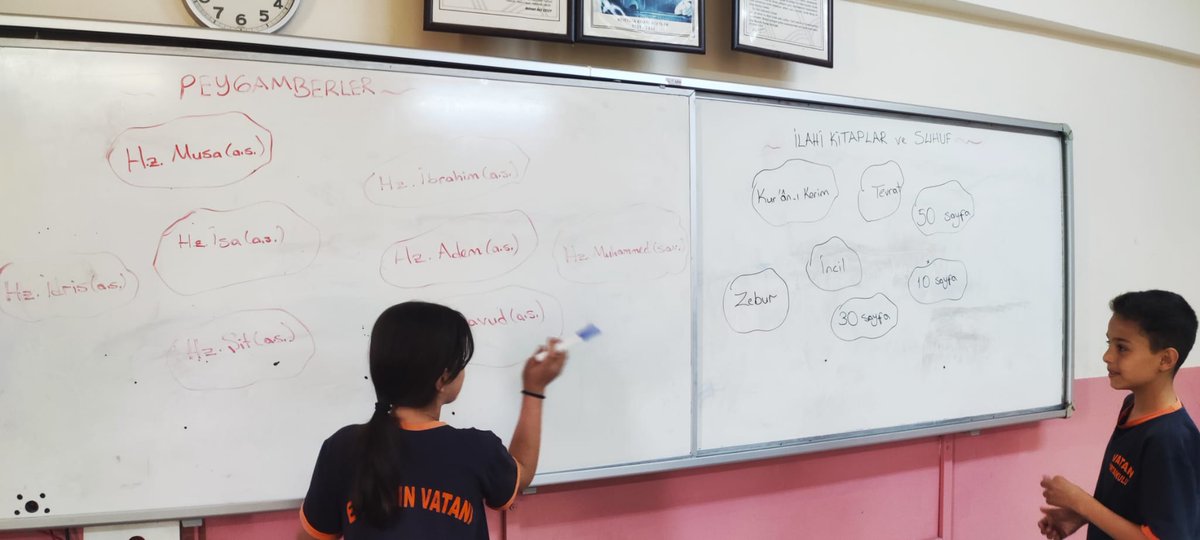 7 6 5 4
PEYGAMBERLER
Hz. Musa (a.s.)
Hz. İbrahim (a.s.)
Hz. İsa (a.s.)
Hz. Adem (a.s.)
Hz. Muhammed (s.a.v.)
Hz. İdris (a.s.)
avud (a.s.)
Hz. Şit (a.s.)
İLAHİ KİTAPLAR ve SUHUF
Kur'ân-ı Kerim
Tevrat
50 sayfa
İncil
10 sayfa
Zebur
30 sayfa
IN VATANI
VATAN